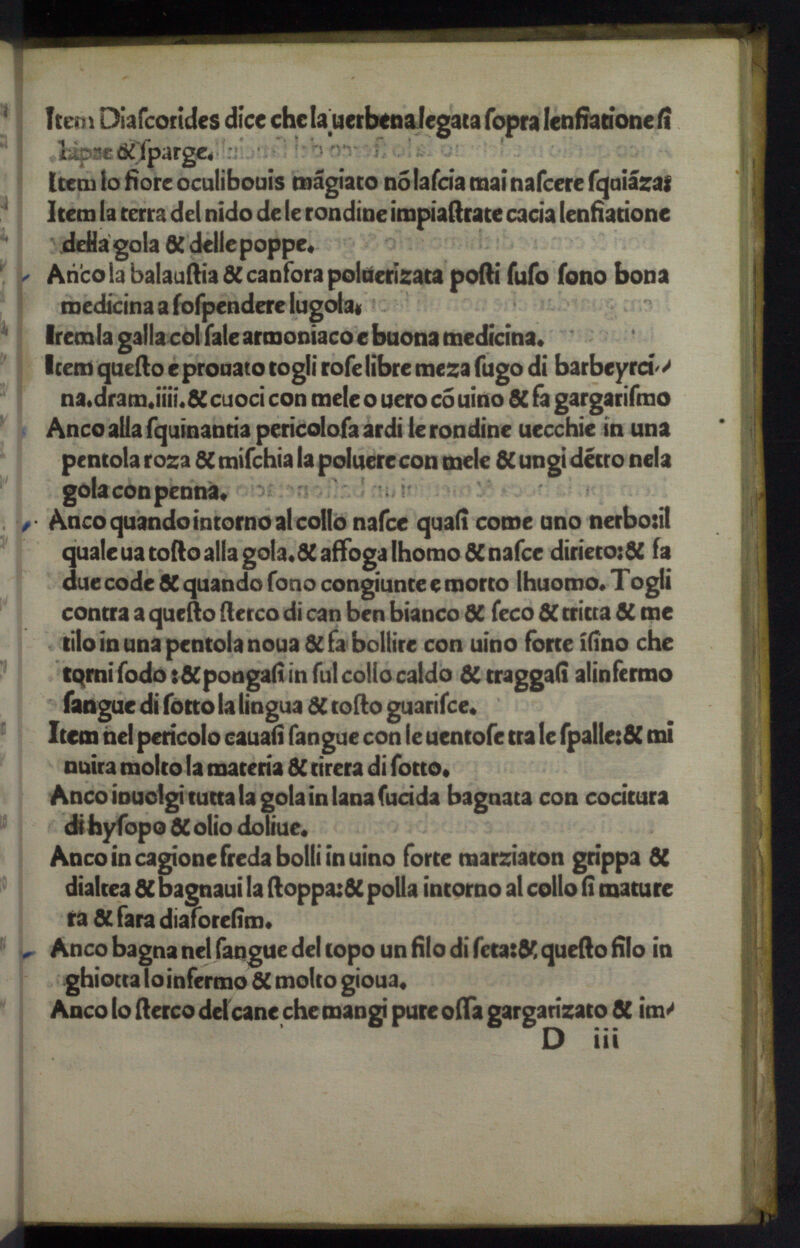 Item Diaſcorides dice che la uerbena legata ſopra lenfiatione ſi
& ſparge.
Item lo fiore oculibouis mãgiato nõ laſcia mai naſcere ſqniãza:
Item la terra del nido de le rondine impiaſtrate cacia lenfiatione
della gola & delle poppe.
Anco la balauſtia & canfora poluerizata poſti ſuſo ſono bona
medicina a ſoſpendere lugola.
Item la galla col ſale armoniaco e buona medicina.
Item queſto e prouato togli roſe libre meza ſugo di barbeyrci⸗
na.dram.iiii.& cuoci con mele o uero cõ uino & fa gargariſmo
Anco alla ſquinantia pericoloſa ardi le rondine uecchie in una
pentola roza & miſchia la poluere con mele & ungi dẽtro nela
gola con penna.
Anco quando intorno al collo naſce quaſi come uno nerbo:il
quale ua toſto alla gola.& affoga lhomo & naſce dirieto:& fa
due code & quando ſono congiunte e morto lhuomo. Togli
contra a queſto ſterco di can ben bianco & ſeco & tritta & me
tilo in una pentola noua & fa bollire con uino forte ĩſino che
torni ſodo:& pongaſi in ſul collo caldo & traggaſi alinfermo
ſangue di ſotto la lingua & toſto guariſce.
Item nel pericolo cauaſi ſangue con le uentoſe tra le ſpalle:& mi
nuira molto la materia & tirera di ſotto.
Anco inuolgi tutta la gola in lana ſucida bagnata con cocitura
di hyſopo & olio doliue.
Anco in cagione freda bolli in uino forte marziaton grippa &
dialtea & bagnaui la ſtoppa:& polla intorno al collo ſi mature
ra & fara diaforeſim.
Anco bagna nel ſangue del topo un filo di ſeta:& queſto filo in
ghiotta lo infermo & molto gioua.
Anco lo ſterco del cane che mangi pure oſſa gargarizato & im⸗
D iii